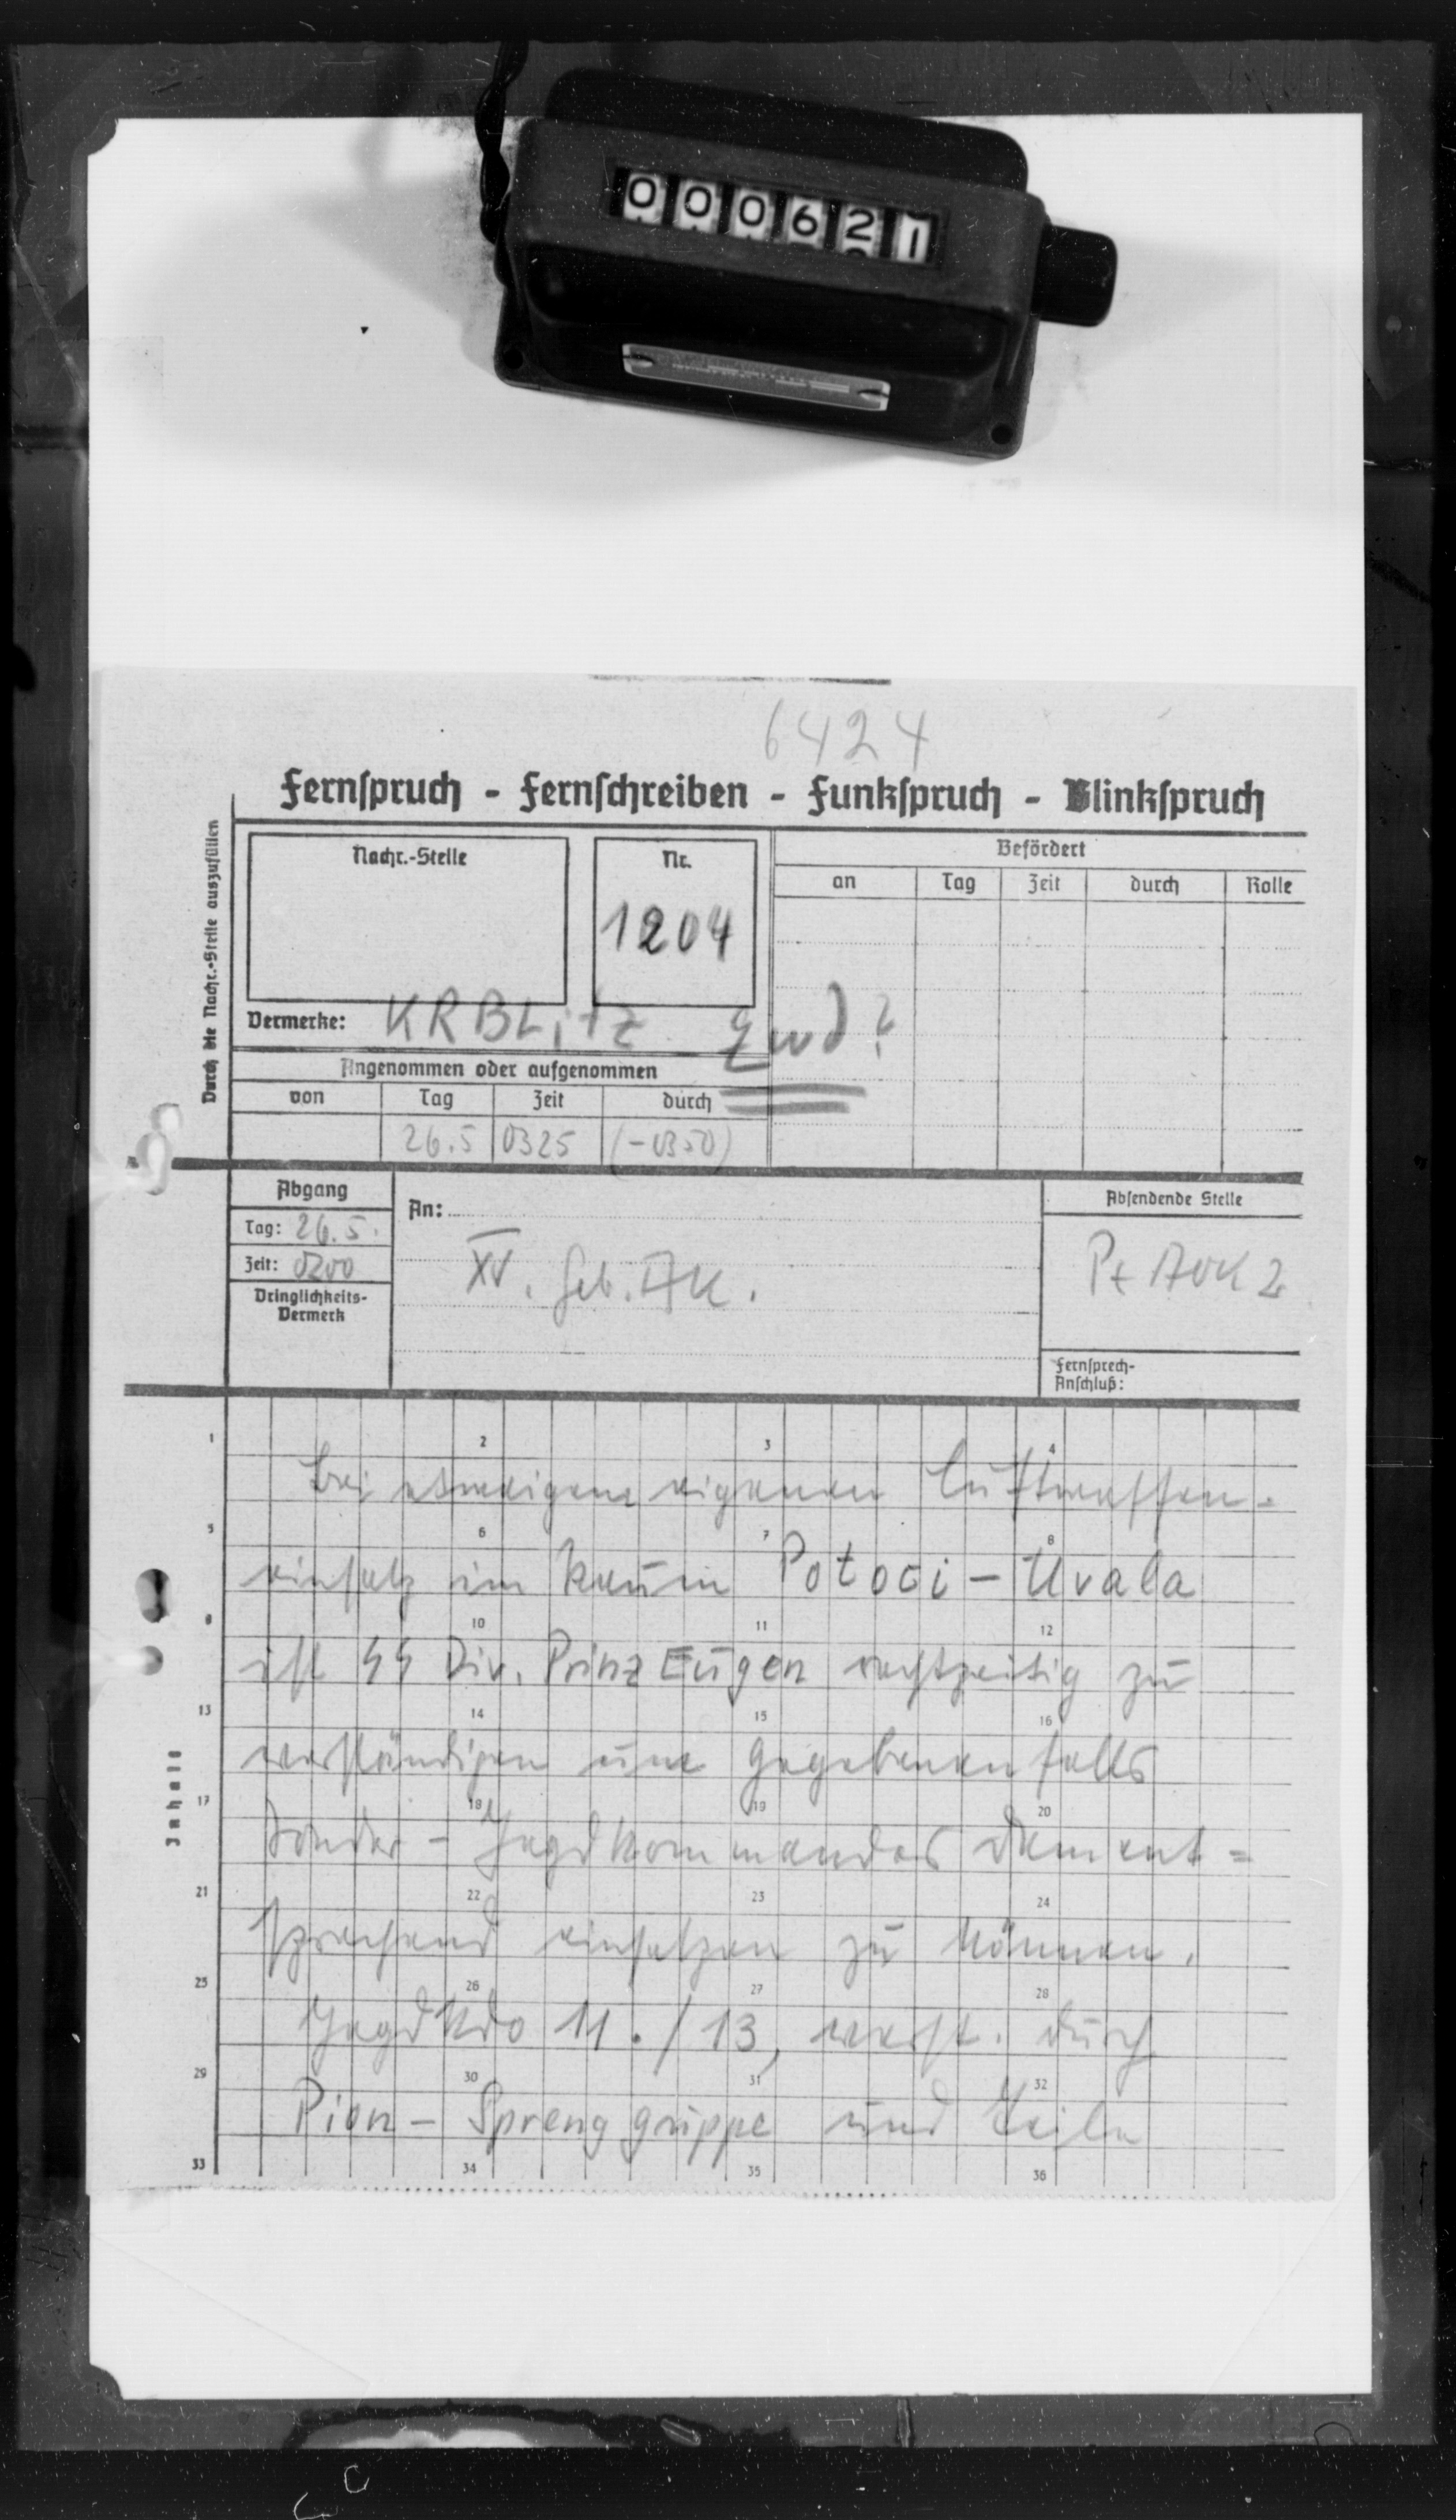 000621
6424
Fernspruch - Fernschreiben - Funkspruch - Blinkspruch
Durch die Nachr.-Stelle auszufüllen
Nachr.-Stelle
Nr.
1204
Befördert
an Tag Zeit durch Rolle
Vermerke: KRBLitz
Angenommen oder aufgenommen
von Tag Zeit durch
26.5 0325 (-0350)
Abgang
Tag: 26.5.
Zeit: 0200
Dringlichkeits-
Vermerk
An:
XV. Geb. AK.
Absendende Stelle
Pz AOK 2
Fernsprech-
Anschluß:
Inhalt
1 2 3 4
Bei etwaigem eigenen Luftwaffen-
5 6 7 8
einsatz im Raum Potoci - Uvala
9 10 11 12
ist SS Div. Prinz Eugen rechtzeitig zu
13 14 15 16
verständigen um gegebenenfalls
17 18 19 20
Sonder - Jagdkommandos dement=
21 22 23 24
sprechend einsetzen zu können.
25 26 27 28
JagdKdo 11./13, verst. durch
29 30 31 32
Pion - Spreng gruppe und Teile
33 34 35 36